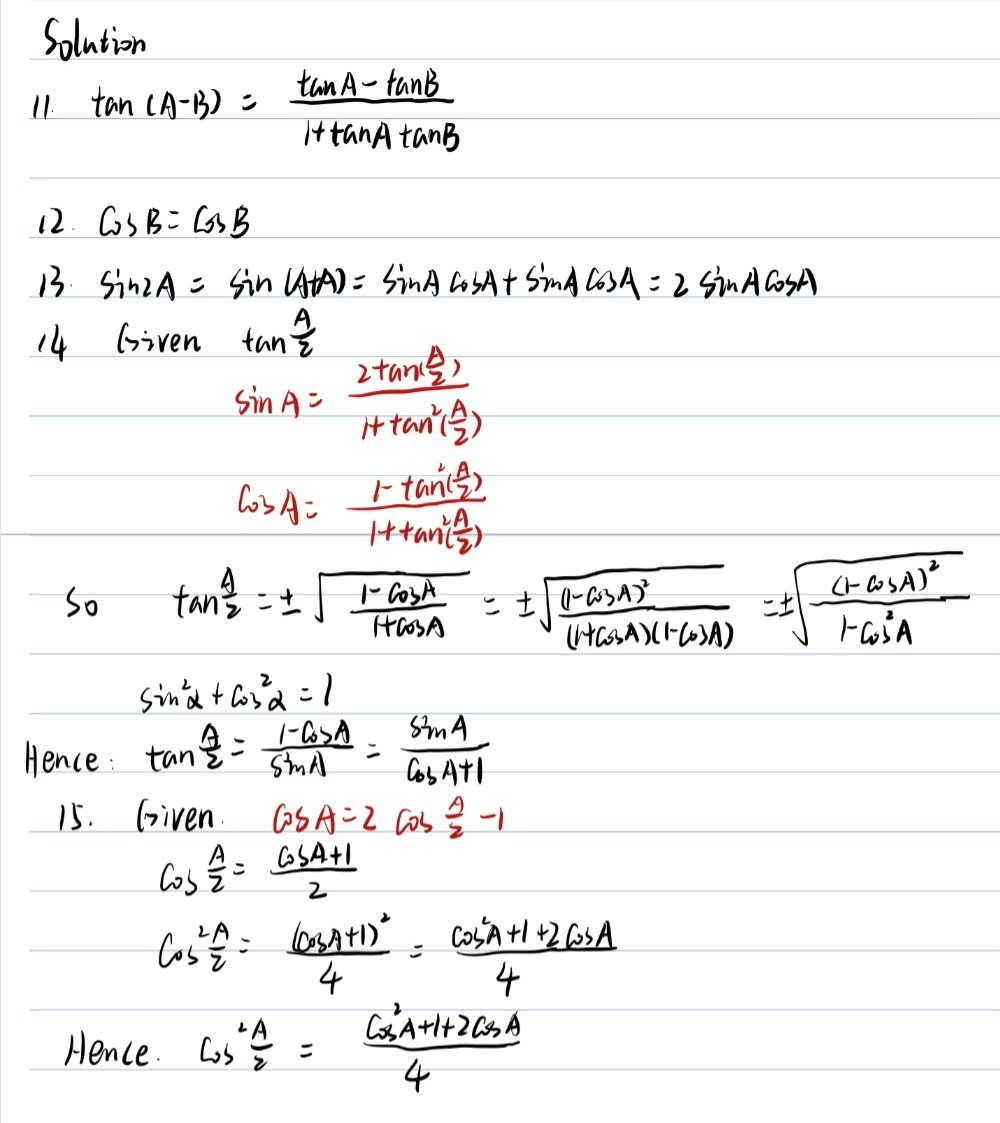 Solution
11. tan (A-B) = (tanA - tanB)/(1+tanA tanB)
12. CosB = CosB
13. Sin2A = Sin (A+A) = SinA CosA + SinA CosA = 2 SinA CosA
14 Given tan A/2
Sin A = 2tan(A/2)/(1+tan²(A/2))
CosA = (1-tan²(A/2))/(1+tan²(A/2))
So tan A/2 = ± √((1-CosA)/(1+CosA)) = ± √((1-CosA)²/((1+CosA)(1-CosA))) = ± √((1-CosA)²/(1-Cos²A))
Sin²α + Cos²α = 1
Hence: tan A/2 = (1-CosA)/SinA = SinA/(CosA+1)
15. Given. CosA = 2 Cos A/2 - 1
Cos A/2 = (CosA+1)/2
Cos² A/2 = (CosA+1)²/4 = (Cos²A+1+2CosA)/4
Hence. Cos² A/2 = (Cos²A+1+2CosA)/4